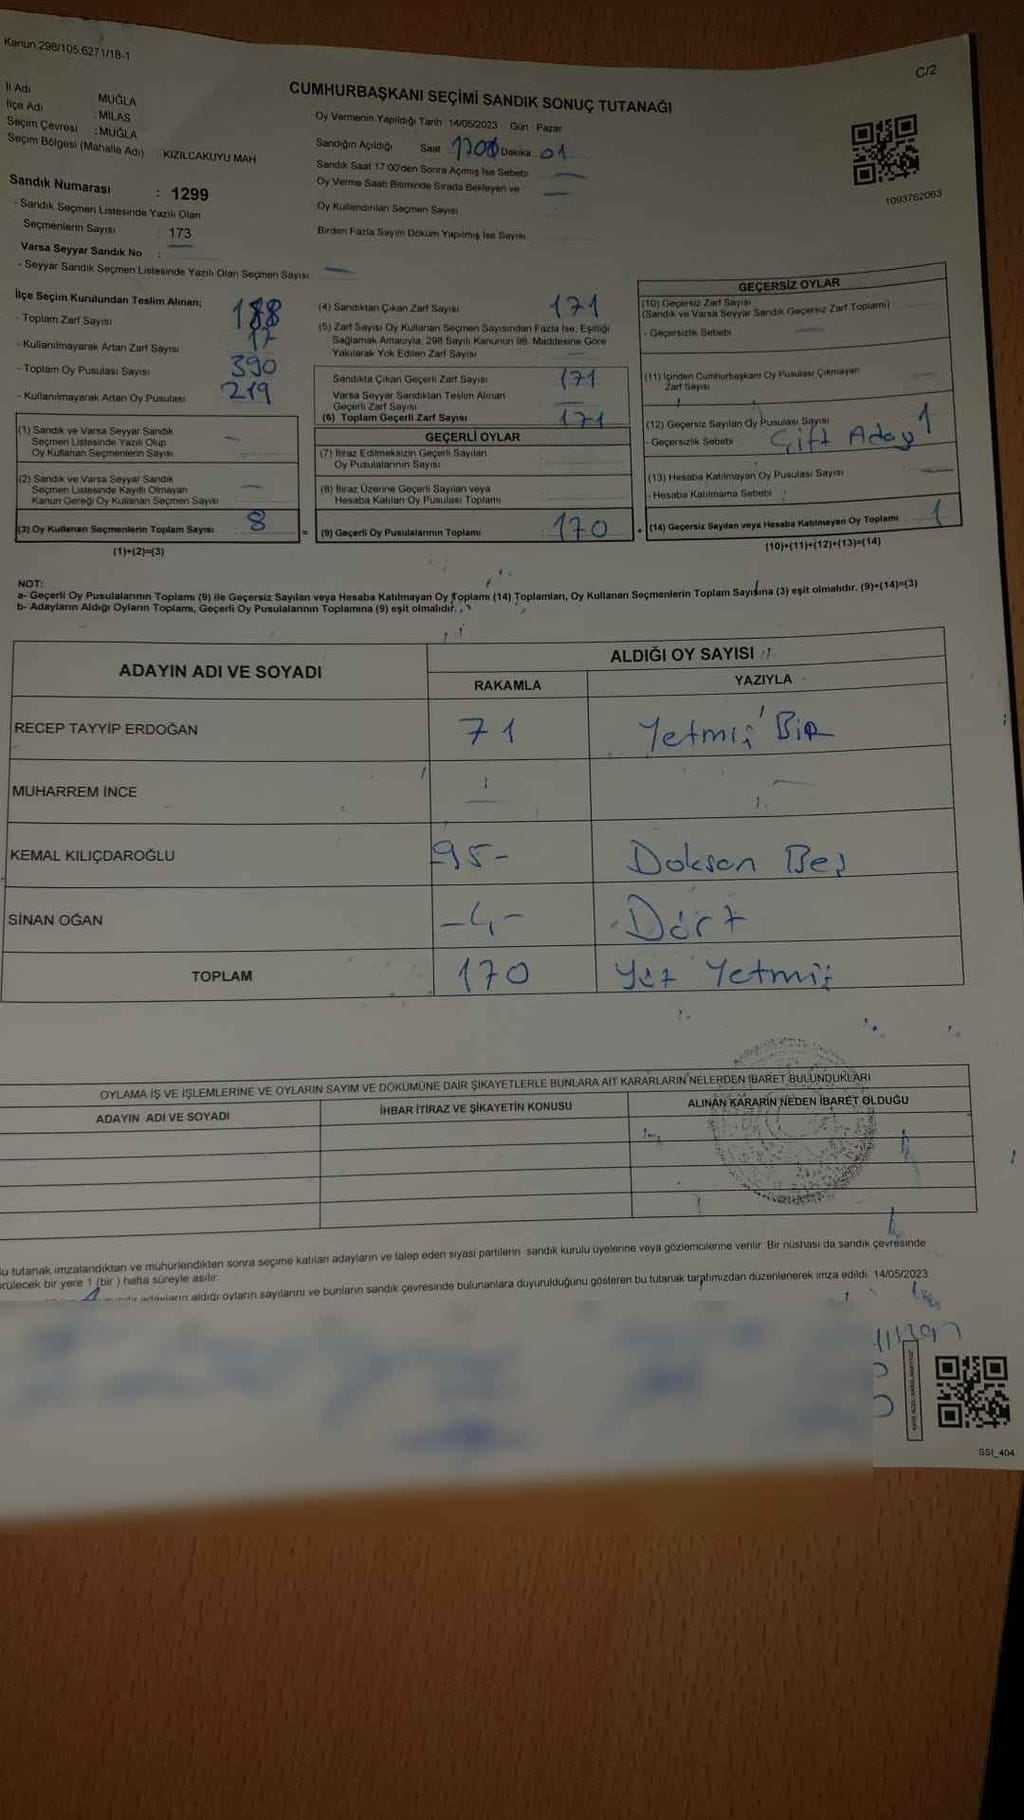 Kanun:298/105,6271/18-1
C/2
CUMHURBAŞKANI SEÇİMİ SANDIK SONUÇ TUTANAĞI
İl Adı : MUĞLA
İlçe Adı : MİLAS
Seçim Çevresi : MUĞLA
Seçim Bölgesi (Mahalle Adı) : KIZILCAKUYU MAH.
Oy Vermenin Yapıldığı Tarih 14/05/2023 Gün : Pazar
Sandığın Açıldığı Saat 1700 Dakika 01
Sandık Saat 17:00'den Sonra Açımış İse Sebebi
Oy Verme Saati Bitiminde Sırada Bekleyen ve
Oy Kullandırılan Seçmen Sayısı
Birden Fazla Sayım Döküm Yapılmış İse Sayısı
1093762063
Sandık Numarası : 1299
- Sandık Seçmen Listesinde Yazılı Olan
Seçmenlerin Sayısı : 173
Varsa Seyyar Sandık No :
- Seyyar Sandık Seçmen Listesinde Yazılı Olan Seçmen Sayısı
İlçe Seçim Kurulundan Teslim Alınan;
- Toplam Zarf Sayısı 188
- Kullanılmayarak Artan Zarf Sayısı 17
- Toplam Oy Pusulası Sayısı 390
- Kullanılmayarak Artan Oy Pusulası 219
(1) Sandık ve Varsa Seyyar Sandık
Seçmen Listesinde Yazılı Olup
Oy Kullanan Seçmenlerin Sayısı
(2) Sandık ve Varsa Seyyar Sandık
Seçmen Listesinde Kayıtlı Olmayan
Kanun Gereği Oy Kullanan Seçmen Sayısı
(3) Oy Kullanan Seçmenlerin Toplam Sayısı : 8
(1)+(2)=(3)
(4) Sandıktan Çıkan Zarf Sayısı 171
(5) Zarf Sayısı Oy Kullanan Seçmen Sayısından Fazla İse, Eşitliği
Sağlamak Amacıyla, 298 Sayılı Kanunun 98. Maddesine Göre
Yakılarak Yok Edilen Zarf Sayısı
Sandıkta Çıkan Geçerli Zarf Sayısı 171
Varsa Seyyar Sandıktan Teslim Alınan
Geçerli Zarf Sayısı
(6) Toplam Geçerli Zarf Sayısı 171
GEÇERLİ OYLAR
(7) İtiraz Edilmeksizin Geçerli Sayılan
Oy Pusulalarının Sayısı
(8) İtiraz Üzerine Geçerli Sayılan veya
Hesaba Katılan Oy Pusulası Toplamı
(9) Geçerli Oy Pusulalarının Toplamı 170
GEÇERSİZ OYLAR
(10) Geçersiz Zarf Sayısı
(Sandık ve Varsa Seyyar Sandık Geçersiz Zarf Toplamı)
- Geçersizlik Sebebi
(11) İçinden Cumhurbaşkanı Oy Pusulası Çıkmayan
Zarf Sayısı
(12) Geçersiz Sayılan Oy Pusulası Sayısı 1
- Geçersizlik Sebebi Çift Aday
(13) Hesaba Katılmayan Oy Pusulası Sayısı
- Hesaba Katılmama Sebebi :
(14) Geçersiz Sayılan veya Hesaba Katılmayan Oy Toplamı 1
(10)+(11)+(12)+(13)=(14)
NOT:
a- Geçerli Oy Pusulalarının Toplamı (9) ile Geçersiz Sayılan veya Hesaba Katılmayan Oy Toplamı (14) Toplamları, Oy Kullanan Seçmenlerin Toplam Sayısına (3) eşit olmalıdır. (9)+(14)=(3)
b- Adayların Aldığı Oyların Toplamı, Geçerli Oy Pusulalarının Toplamına (9) eşit olmalıdır.
ADAYIN ADI VE SOYADI
ALDIĞI OY SAYISI
RAKAMLA YAZIYLA
RECEP TAYYİP ERDOĞAN 71 Yetmiş Bir
MUHARREM İNCE
KEMAL KILIÇDAROĞLU 95- Doksan Beş
SİNAN OĞAN -4- Dört
TOPLAM 170 Yüz Yetmiş
OYLAMA İŞ VE İŞLEMLERİNE VE OYLARIN SAYIM VE DÖKÜMÜNE DAİR ŞİKAYETLERLE BUNLARA AİT KARARLARIN NELERDEN İBARET BULUNDUKLARI
ADAYIN ADI VE SOYADI İHBAR İTİRAZ VE ŞİKAYETİN KONUSU ALINAN KARARIN NEDEN İBARET OLDUĞU
bu tutanak imzalandıktan ve mühürlendikten sonra seçime katılan adayların ve talep eden siyasi partilerin sandık kurulu üyelerine veya gözlemcilerine verilir. Bir nüshası da sandık çevresinde
örülecek bir yere 1 (bir ) hafta süreyle asılır.
adayların aldığı oyların sayılarını ve bunların sandık çevresinde bulunanlara duyurulduğunu gösteren bu tutanak tarafımızdan düzenlenerek imza edildi. 14/05/2023
SSI_404